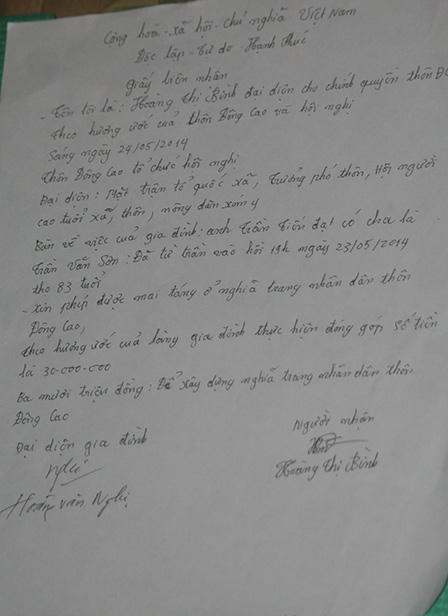 Cộng hoà - xã hội - chủ nghĩa Việt Nam
Độc lập - Tự do - Hạnh Phúc
Giấy biên nhân
- Tên tôi là: Hoàng Thị Bình đại diện cho chính quyền thôn
Theo hương ước của thôn Đồng Cao và hội nghị
Sáng ngày 24/05/2014
Thôn Đồng Cao tổ chức hội nghị
Đại diện: Mặt trận tổ quốc xã, Trưởng phó thôn, Hội người
cao tuổi xã, thôn, nông dân xóm 4
Bàn về việc của gia đình: anh Trần Tiến đạt có cha là
Trần Văn Sơn: Đã từ trần vào hồi 19h ngày 23/05/2014
thọ 83 tuổi
- Xin phép được mai táng ở nghĩa trang nhân dân thôn
Đồng Cao,
theo hương ước của làng gia đình thực hiện đóng góp số tiền
là 30-000-000
Ba mươi triệu đồng: Để xây dựng nghĩa trang nhân dân thôn
Đồng Cao
Đại diện gia đình
Nghị
Hoàng văn Nghị
Người nhận
Hoàng Thị Bình